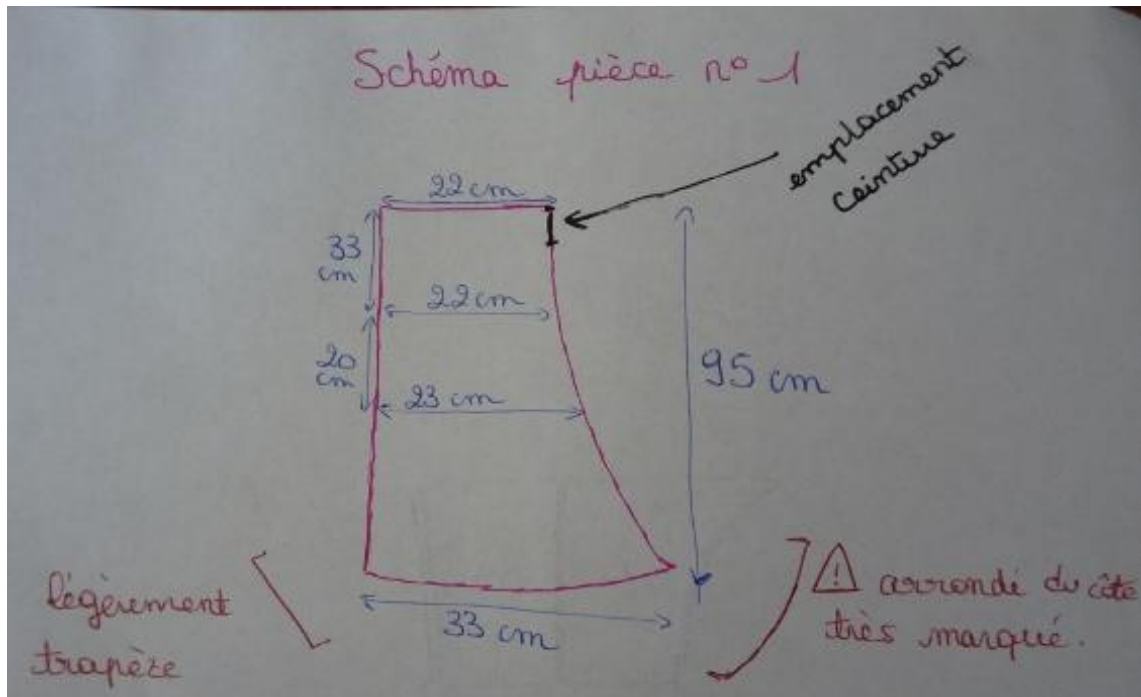 Schéma pièce nº 1
emplacement
ceinture
22 cm
33
cm
22 cm
20
cm
23 cm
95 cm
33 cm
légèrement
trapèze
⚠ arrondi du côté
très marqué.